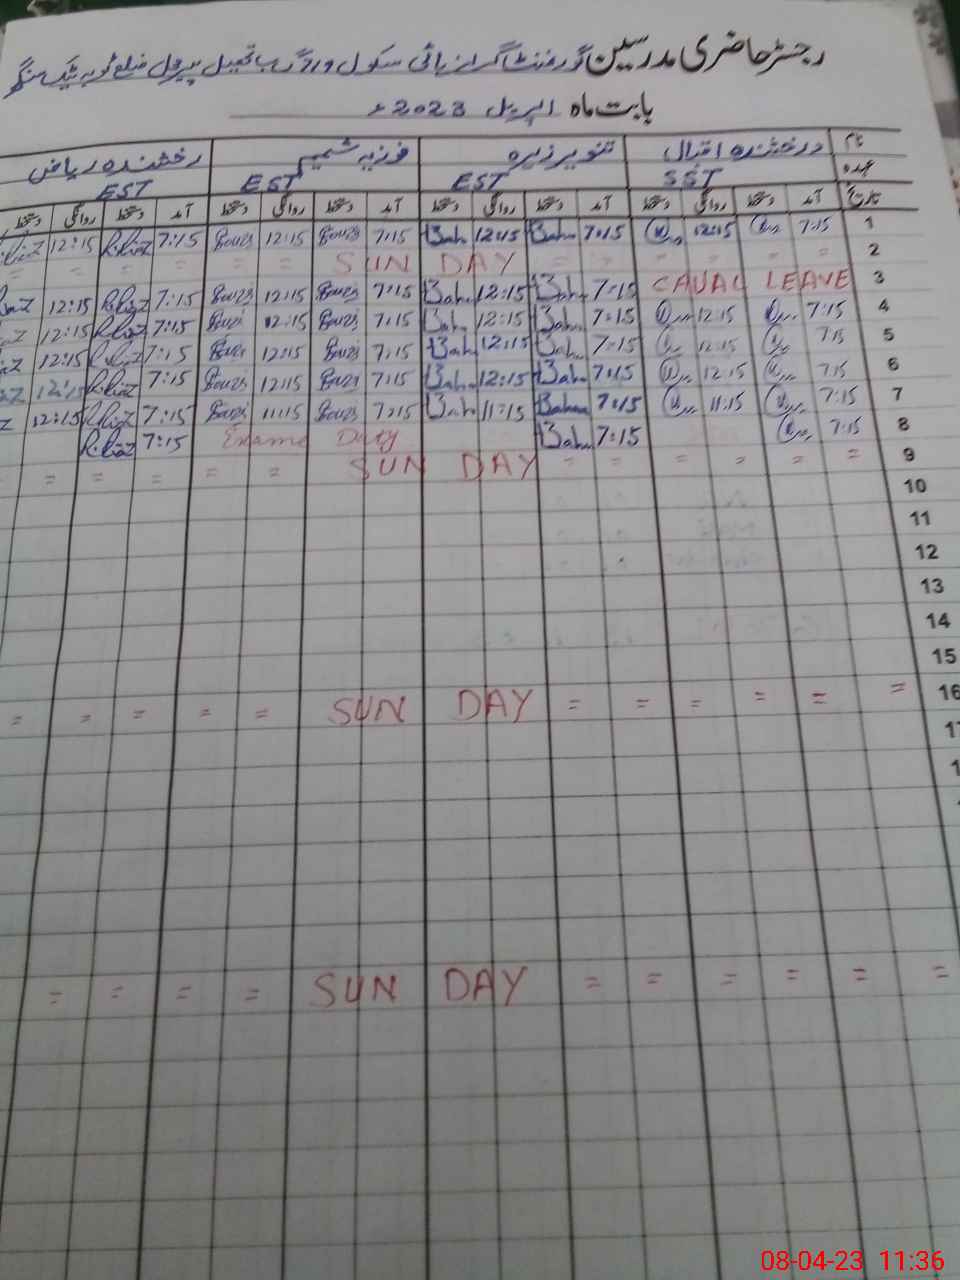 رجسٹر حاضری مدرسین گورنمنٹ گرلز ہائی سکول
بابت ماہ اپریل 2023ء
نام درخشندہ اقبال تنویر زہرہ فوزیہ شمیم رخشندہ ریاض
عہدہ SST EST EST EST
تاریخ آمد دستخط روانگی دستخط آمد دستخط روانگی دستخط آمد دستخط روانگی دستخط آمد دستخط روانگی دستخط
1 7:15 12:15 7:15 Bah 12:15 Bah 7:15 Fouzi 12:15 Fouzi 7:15 R.Riaz 12:15
2 = = = = SUN DAY = = = =
3 CAUAL LEAVE 7:15 Bah 12:15 Bah 7:15 Fouzi 12:15 Fouzi 7:15 R.Riaz 12:15
4 7:15 12:15 7:15 Bah 12:15 Bah 7:15 Fouzi 12:15 Fouzi 7:15 R.Riaz 12:15
5 7:15 12:15 7:15 Bah 12:15 Bah 7:15 Fouzi 12:15 Fouzi 7:15 R.Riaz 12:15
6 7:15 12:15 7:15 Bah 12:15 Bah 7:15 Fouzi 12:15 Fouzi 7:15 R.Riaz 12:15
7 7:15 11:15 7:15 Bah 11:15 Bah 7:15 Fouzi 11:15 Fouzi 7:15 R.Riaz 12:15
8 7:15 7:15 Bah Exame Duty 7:15 R.Riaz
9 = = = = = SUN DAY = = = = =
10
11
12
13
14
15
16 = = = = = = SUN DAY = = = = =
= = = = = = SUN DAY = = = =
08-04-23 11:36